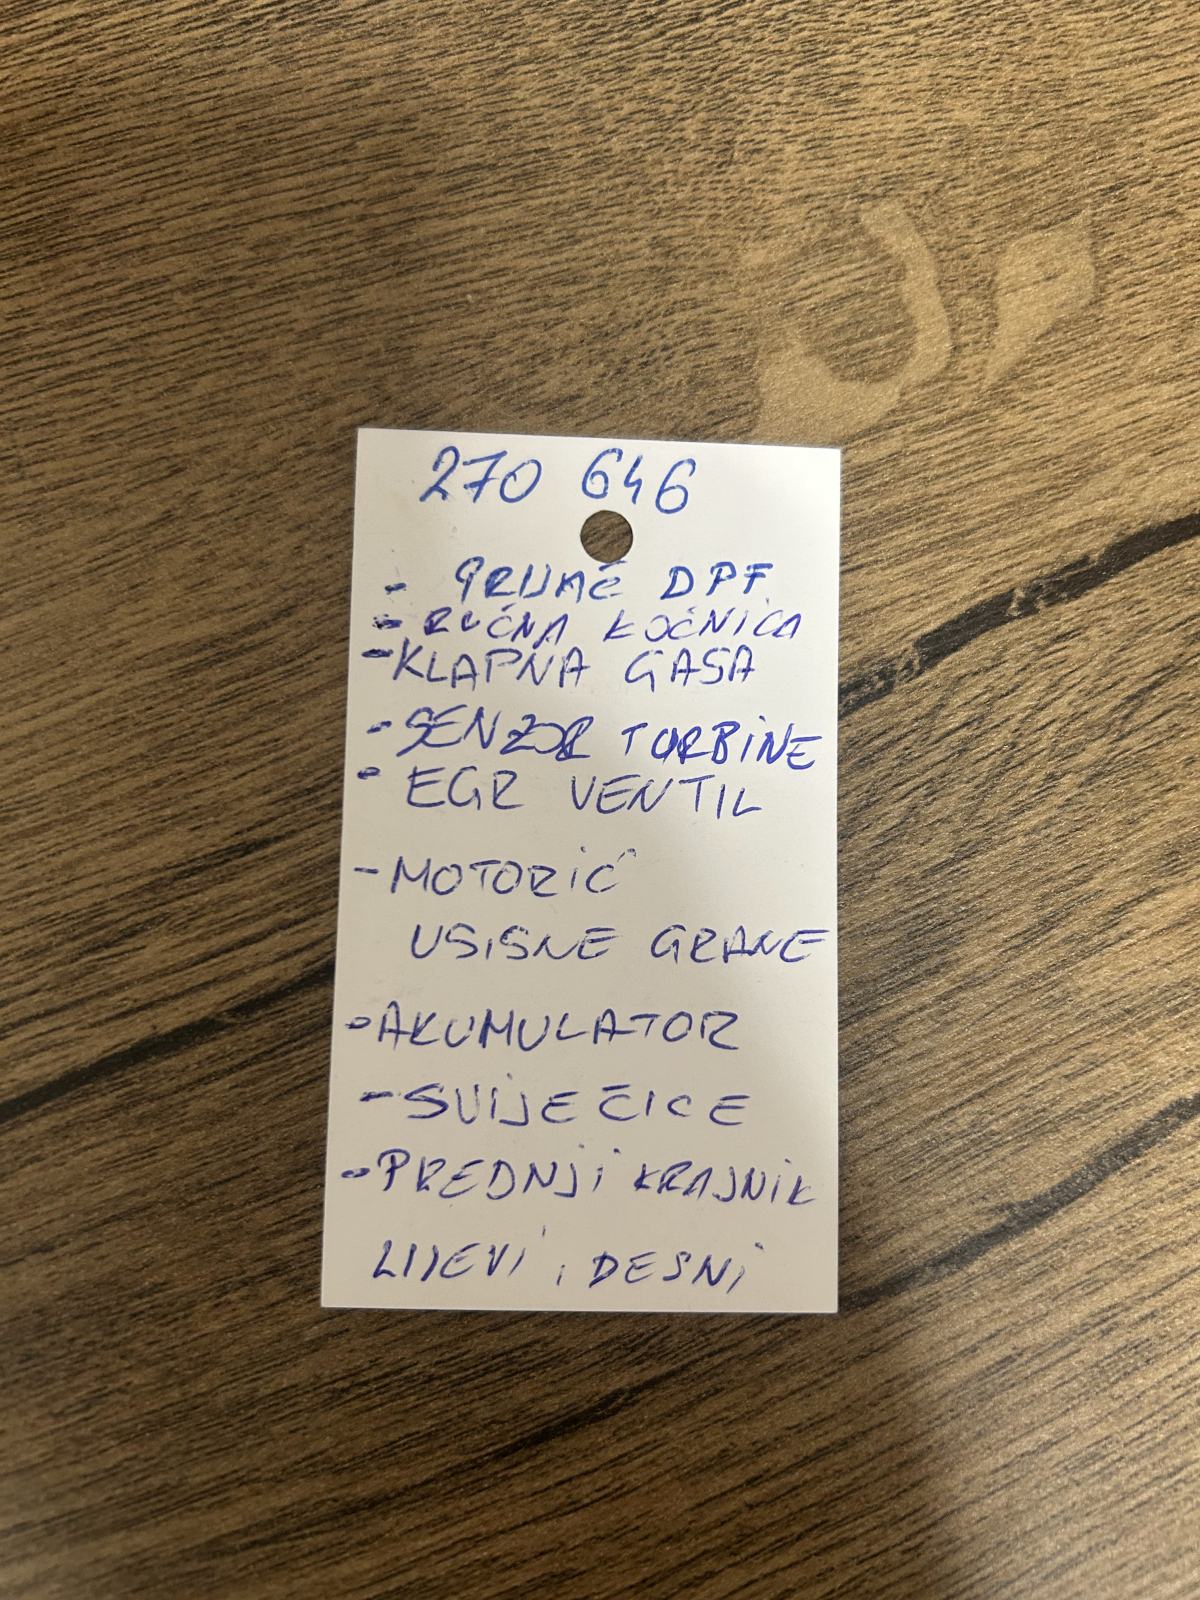 270 646
- GRIJAČ DPF
- RUČNA KOČNICA
- KLAPNA GASA
- SENZOR TURBINE
- EGR VENTIL
- MOTORIĆ
USISNE GRANE
- AKUMULATOR
- SVIJEČICE
- PREDNJI KRAJNIK
LIJEVI, DESNI